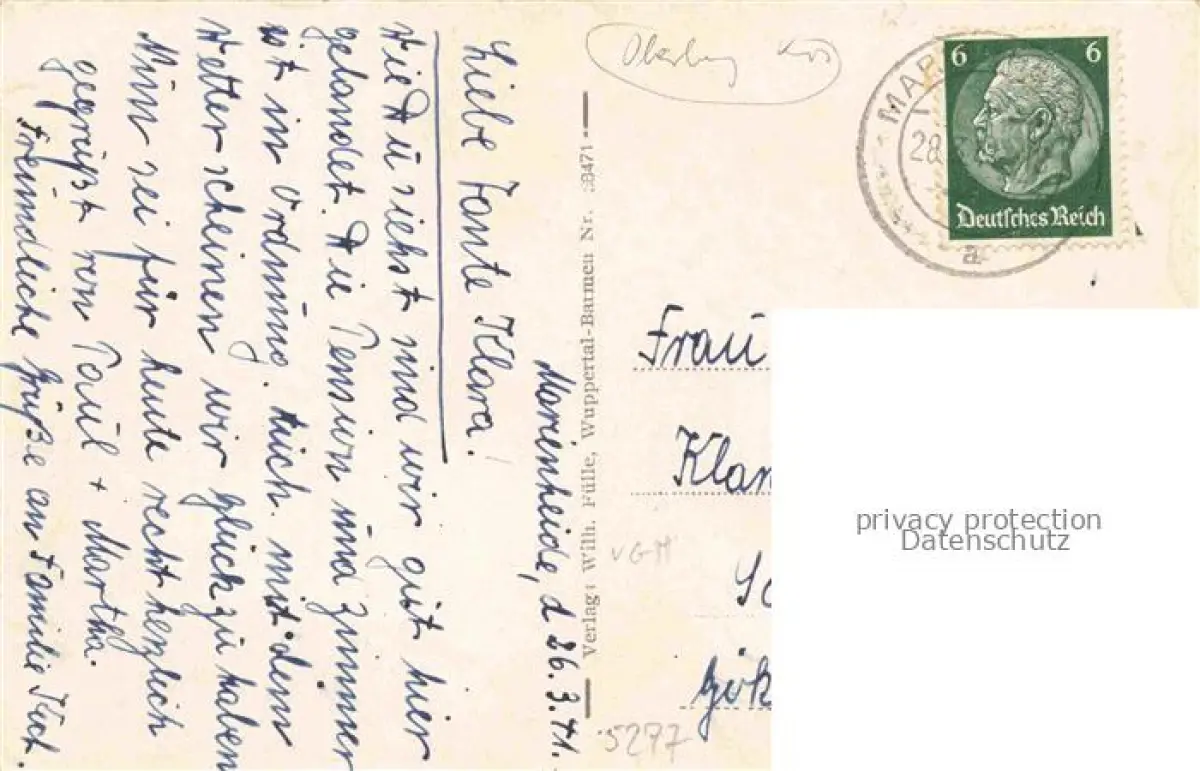 Marienheide, d 26.3.41.
Liebe Tante Klara!
Wie Du siehst sind wir gut hier
gelandet. Die Pension und Zimmer
ist in Ordnung. Auch mit dem
Wetter scheinen wir Glück zu haben
Nun sei für heute recht herzlich
gegrüßt von Paul + Martha.
Freundliche Grüße an Familie Kuch.
Verlag: Wilh. Fülle, Wuppertal-Barmen Nr. 38471
6 6
Deutsches Reich
MAR
28.
a
Frau
Klar
Sc
Gök
VGH
5277
privacy protection
Datenschutz